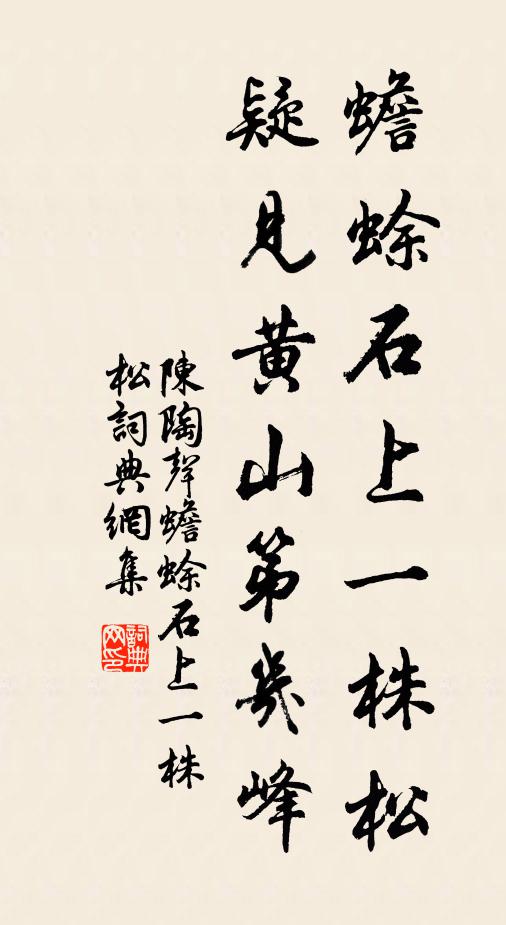 蟾蜍石上一株松
疑見黄山第幾峰
陳陶聲蟾蜍石上一株
松詞典網集
詞典
网印